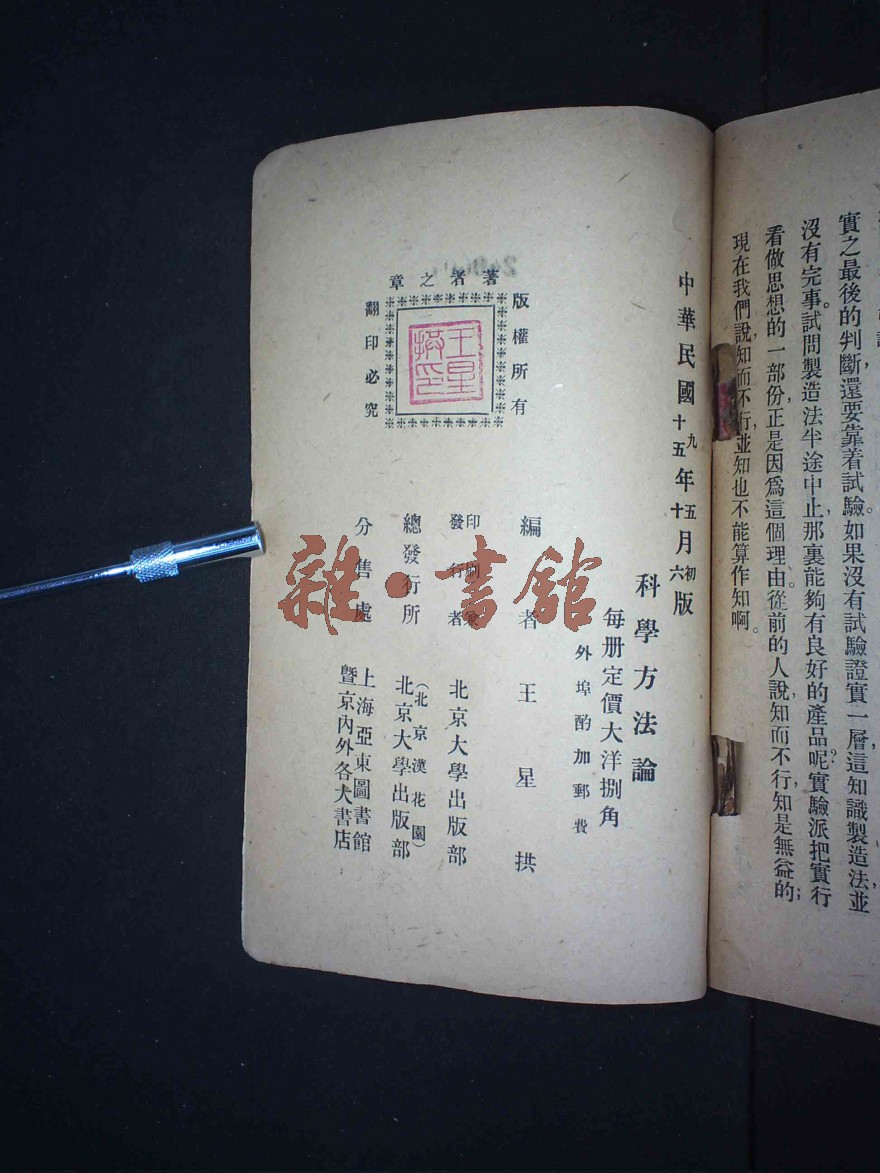 實之最後的判斷，還要靠着試驗。如果沒有試驗證實一層，這知識製造法並
沒有完事。試問製造法半途中止，那裏能夠有良好的產品呢？實驗派把實行
看做思想的一部份，正是因爲這個理由。從前的人說，知而不行，知是無益的；
現在我們說，知而不行，並知也不能算作知啊。
中華民國十五九年十五月六初版
科學方法論
每册定價大洋捌角
外埠酌加郵費
編者 王星拱
印刷兼
發行者 北京大學出版部
總發行所 北京大學出版部
(北京漢花園)
分售處 上海亞東圖書館
暨京內外各大書店
版權所有
著者之章
王星
拱印
翻印必究
雜·書館